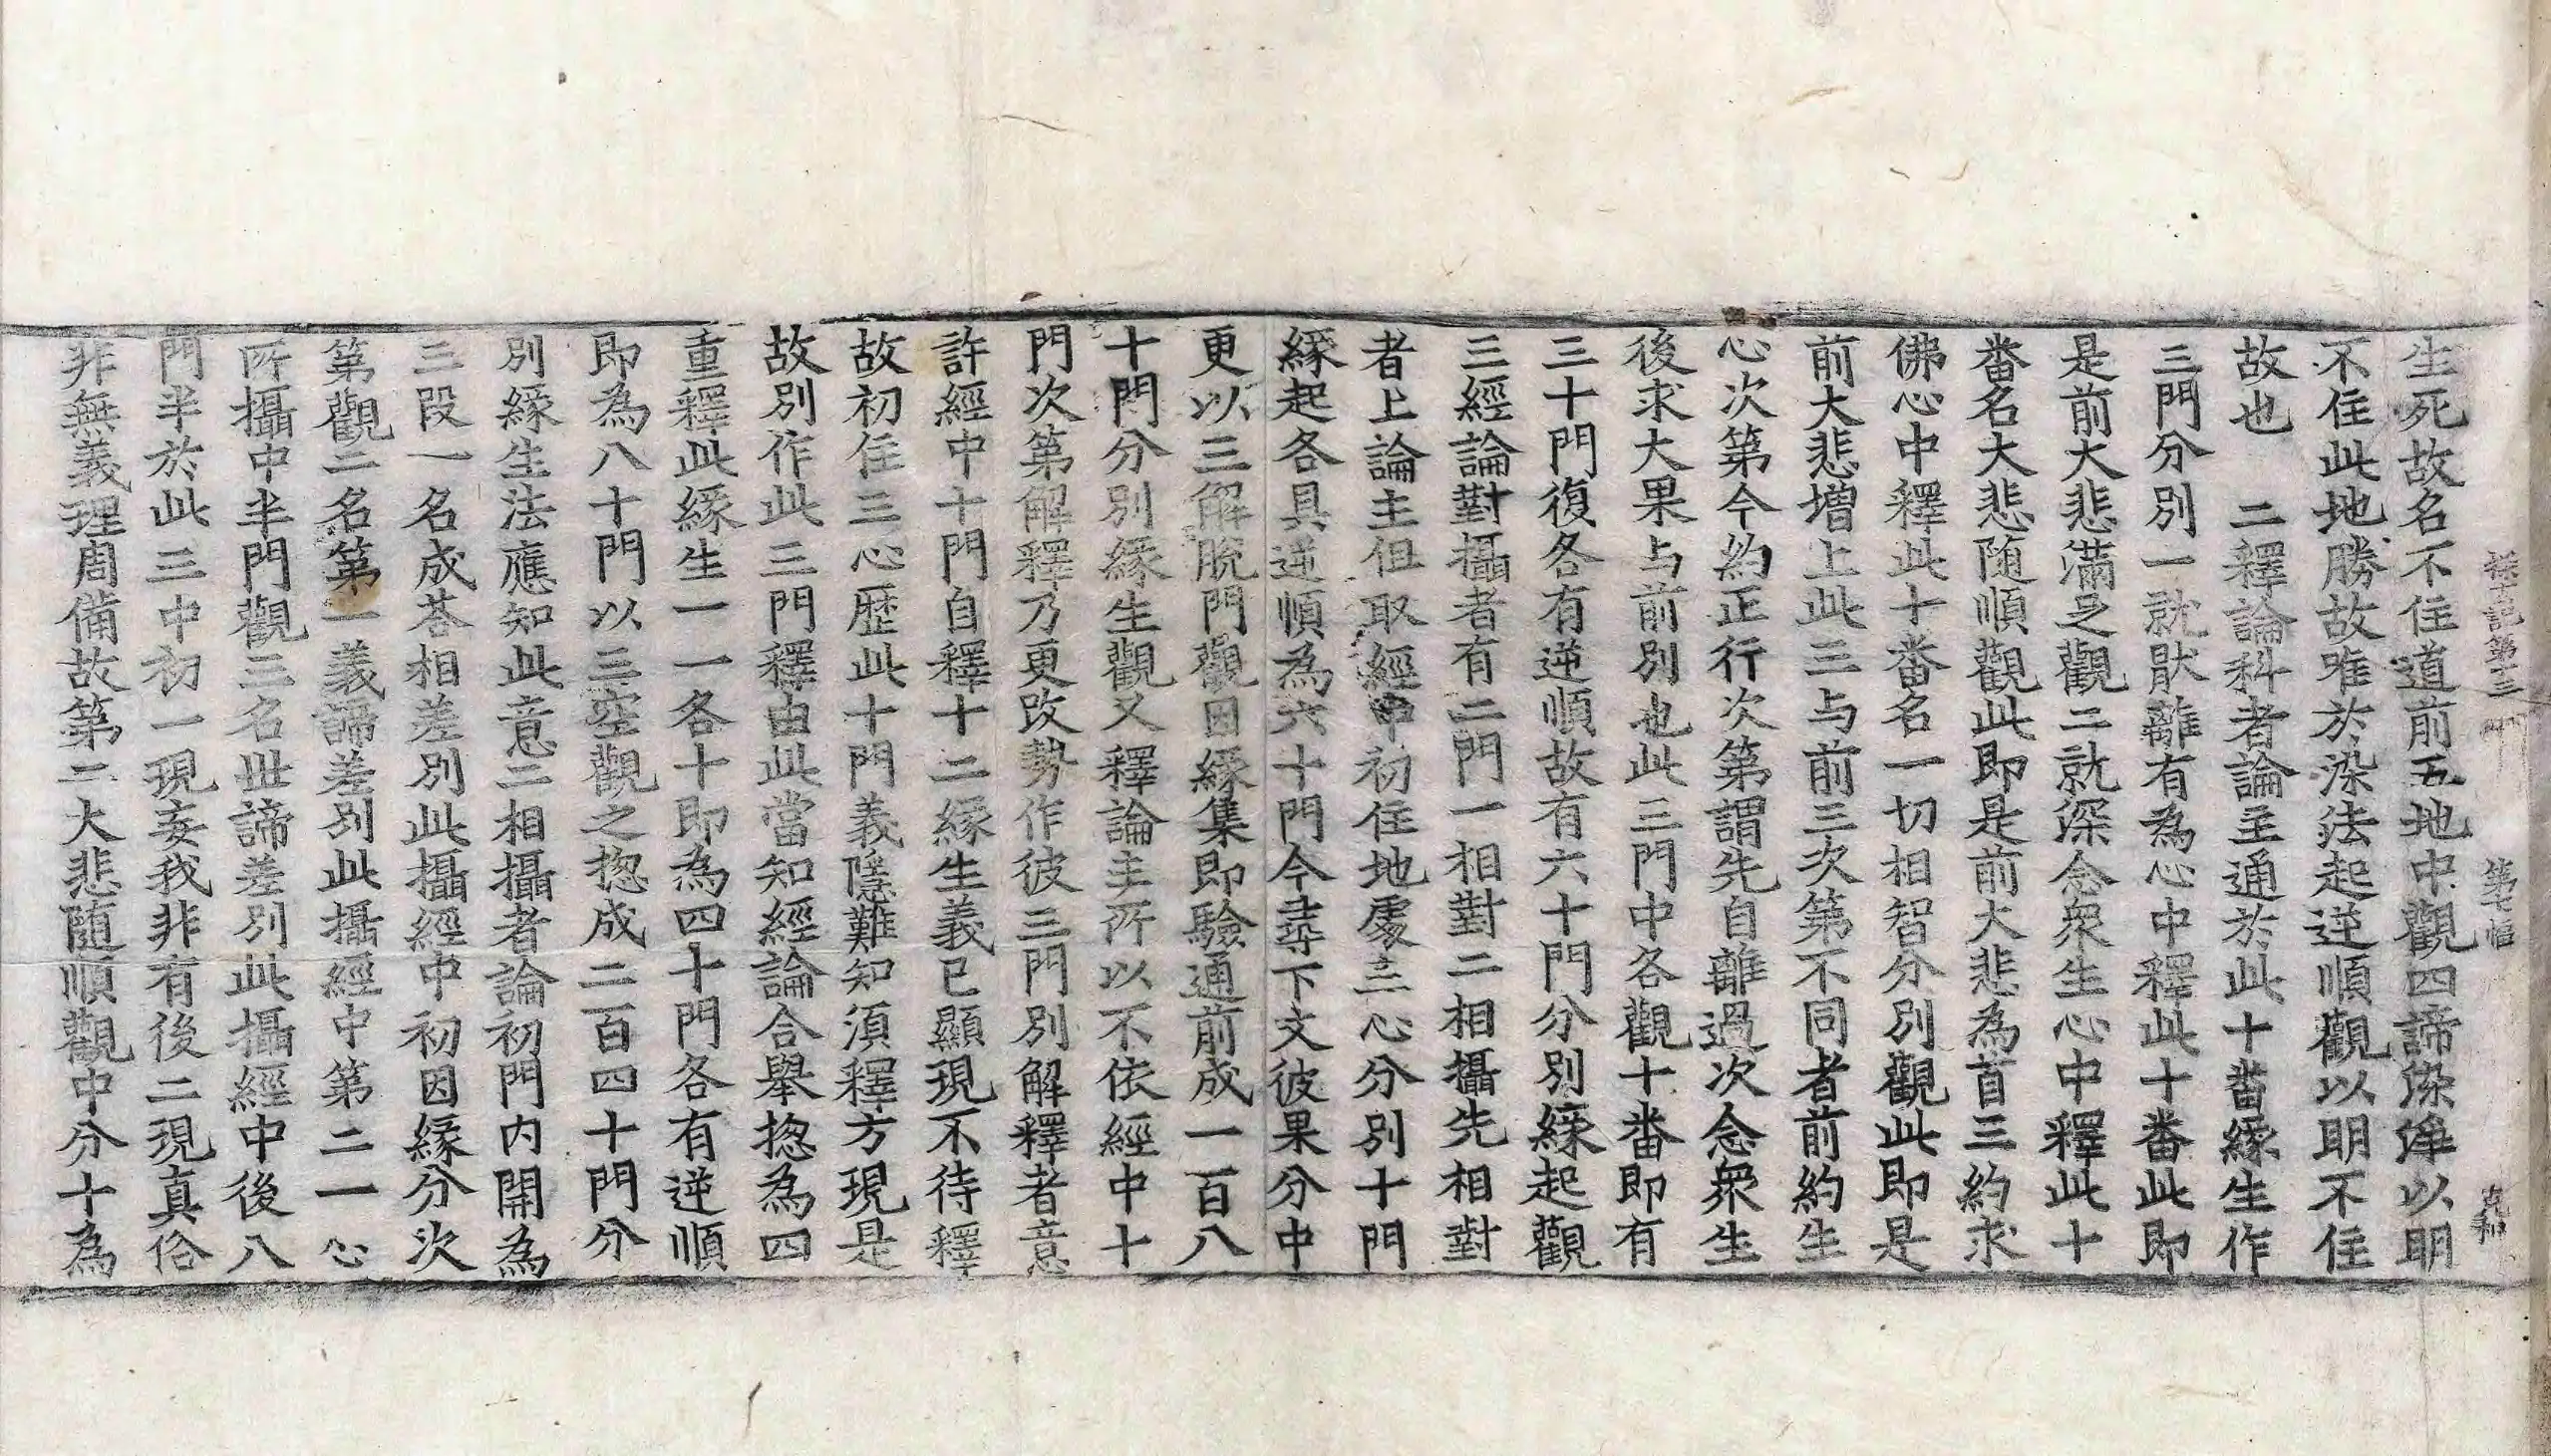 探玄記第十三 第七幅 克和
生死故名不住道前五地中觀四諦染淨以明
不住此地勝故唯於染法起逆順觀以明不住
故也　二釋論科者論主通於此十畨縁生作
三門分別一就猒離有為心中釋此十畨此即
是前大悲滿足觀二就深念衆生心中釋此十
畨名大悲随順觀此即是前大悲為首三約求
佛心中釋此十畨名一切相智分別觀此即是
前大悲增上此三与前三次第不同者前約生
心次第今約正行次第謂先自離過次念衆生
後求大果与前別也此三門中各觀十畨即有
三十門復各有逆順故有六十門分別縁起觀
三經論對攝者有二門一相對二相攝先相對
者上論主但取經中初住地處三心分別十門
縁起各具逆順為六十門今尋下文彼果分中
更以三解脫門觀因縁集即驗通前成一百八
十門分別縁生觀又釋論主所以不依經中十
門次第解釋乃更改勢作彼三門別解釋者意
許經中十門自釋十二縁生義已顯現不待釋
故初住三心歷此十門義隱難知須釋方現是
故別作此三門釋由此當知經論合舉揔為四
重釋此縁生一一各十即為四十門各有逆順
即為八十門以三空觀之揔成二百四十門分
別縁生法應知此意二相攝者論初門內開為
三段一名成荅相差別此攝經中初因縁分次
第觀二名第一義諦差別此攝經中第二一心
所攝中半門觀三名丗諦差別此攝經中後八
門半於此三中初一現妄我非有後二現真俗
非無義理周俻故第二大悲随順觀中分十為